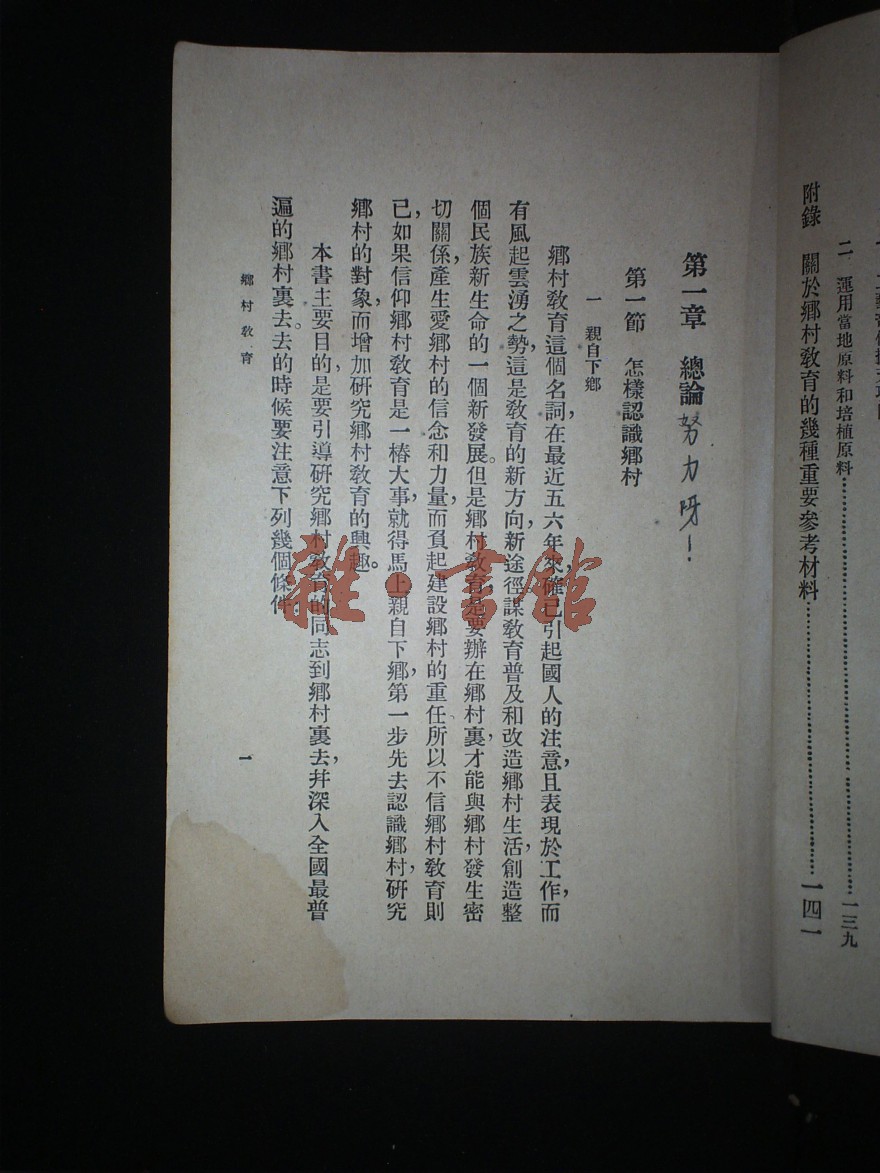 二 運用當地原料和培植原料……一三九
附錄 關於鄉村教育的幾種重要參考材料……一四一
第一章 總論 努力呀！
第一節 怎樣認識鄉村
一 親自下鄉
鄉村教育這個名詞，在最近五六年來，確已引起國人的注意，且表現於工作，而
有風起雲湧之勢，這是教育的新方向，新途徑，謀教育普及和改造鄉村生活，創造整
個民族新生命的一個新發展。但是鄉村教育，是要辦在鄉村裏，才能與鄉村發生密
切關係，產生愛鄉村的信念和力量，而負起建設鄉村的重任。所以不信鄉村教育則
已，如果信仰鄉村教育是一樁大事，就得馬上親自下鄉，第一步先去認識鄉村，研究
鄉村的對象，而增加研究鄉村教育的興趣。
本書主要目的，是要引導研究鄉村教育的同志到鄉村裏去，并深入全國最普
遍的鄉村裏去。去的時候要注意下列幾個條件：
鄉村教育
一
雜·書館